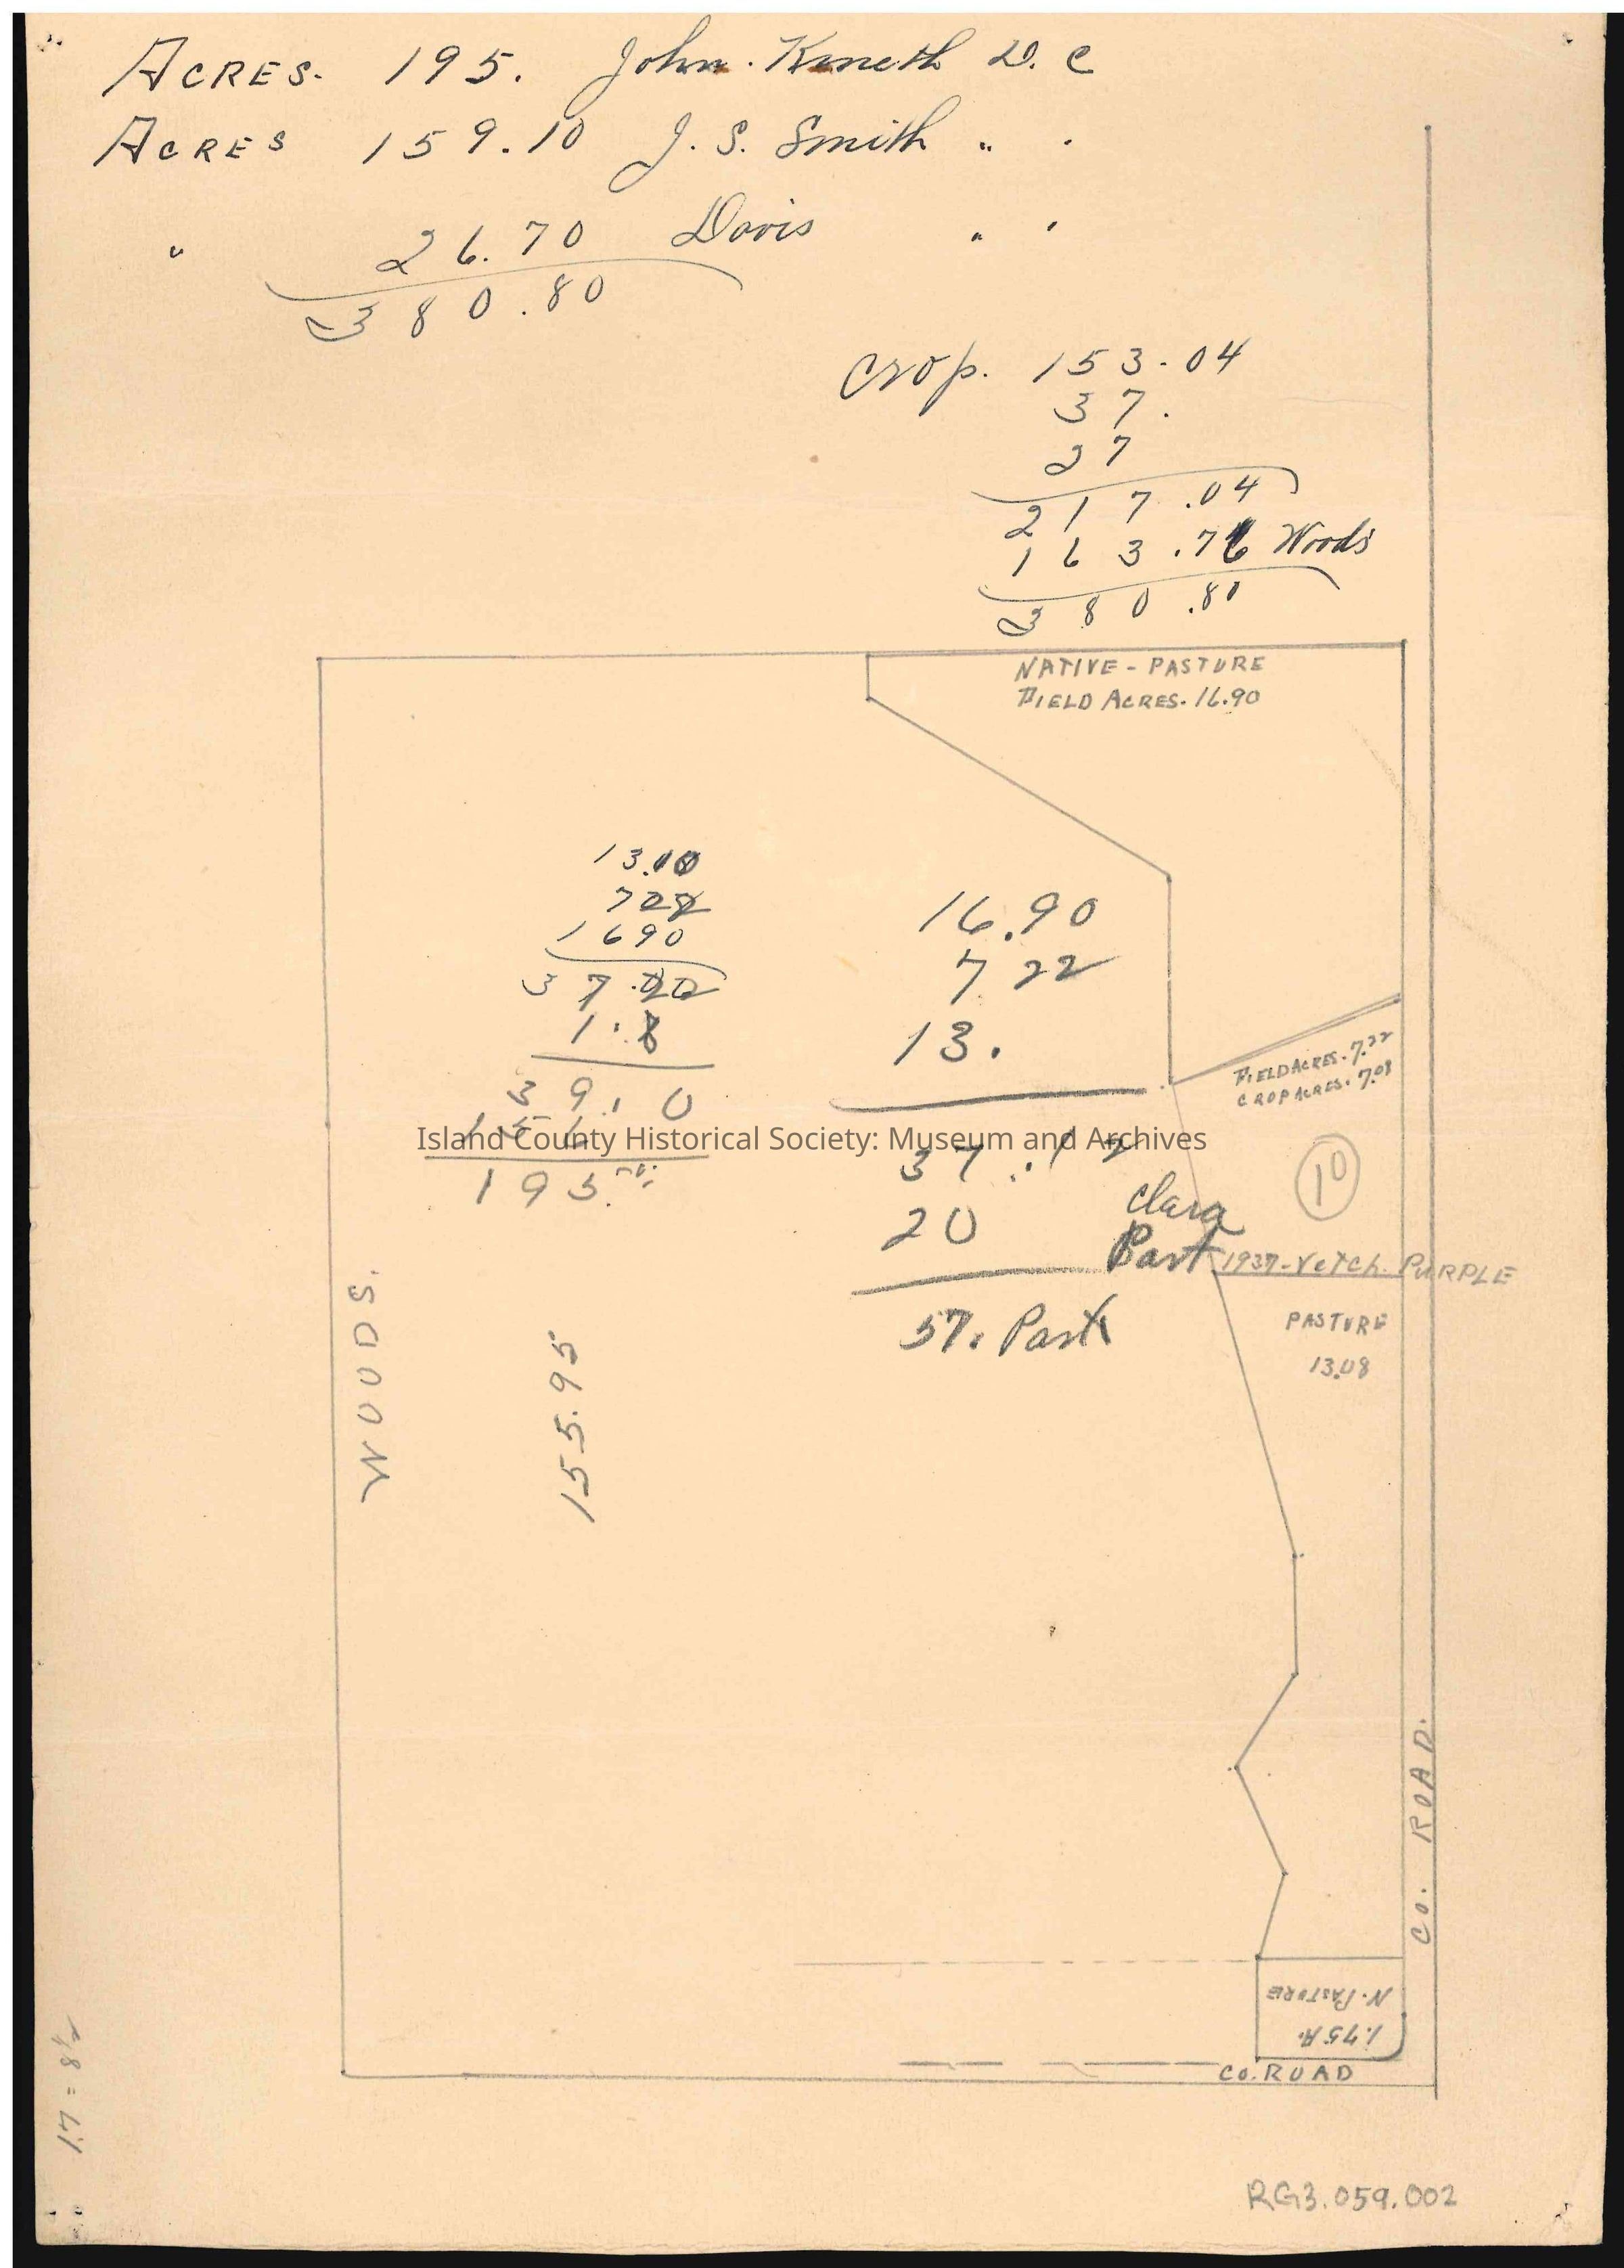 ACRES. 195. John. Kineth D. C
ACRES 159.10 J. S. Smith " .
" 26.70 Davis " '
380.80
Crop. 153.04
37.
27
217.04
163.76 Woods
380.80
NATIVE - PASTURE
FIELD ACRES. 16.90
13.10
722
1690
37.
1.8
39.0
195.
16.90
7 22
13.
37.12
20
Clara
Past
57. Past
FIELD ACRES. 7.22
CROP ACRES. 7.09
10
1937-Vetch. PURPLE
PASTURE
13.08
WOODS.
155.95
Island County Historical Society: Museum and Archives
CO. ROAD.
N. PASTURE
1.75 A.
CO. ROAD
17 = 8 1/2
RG3.059.002